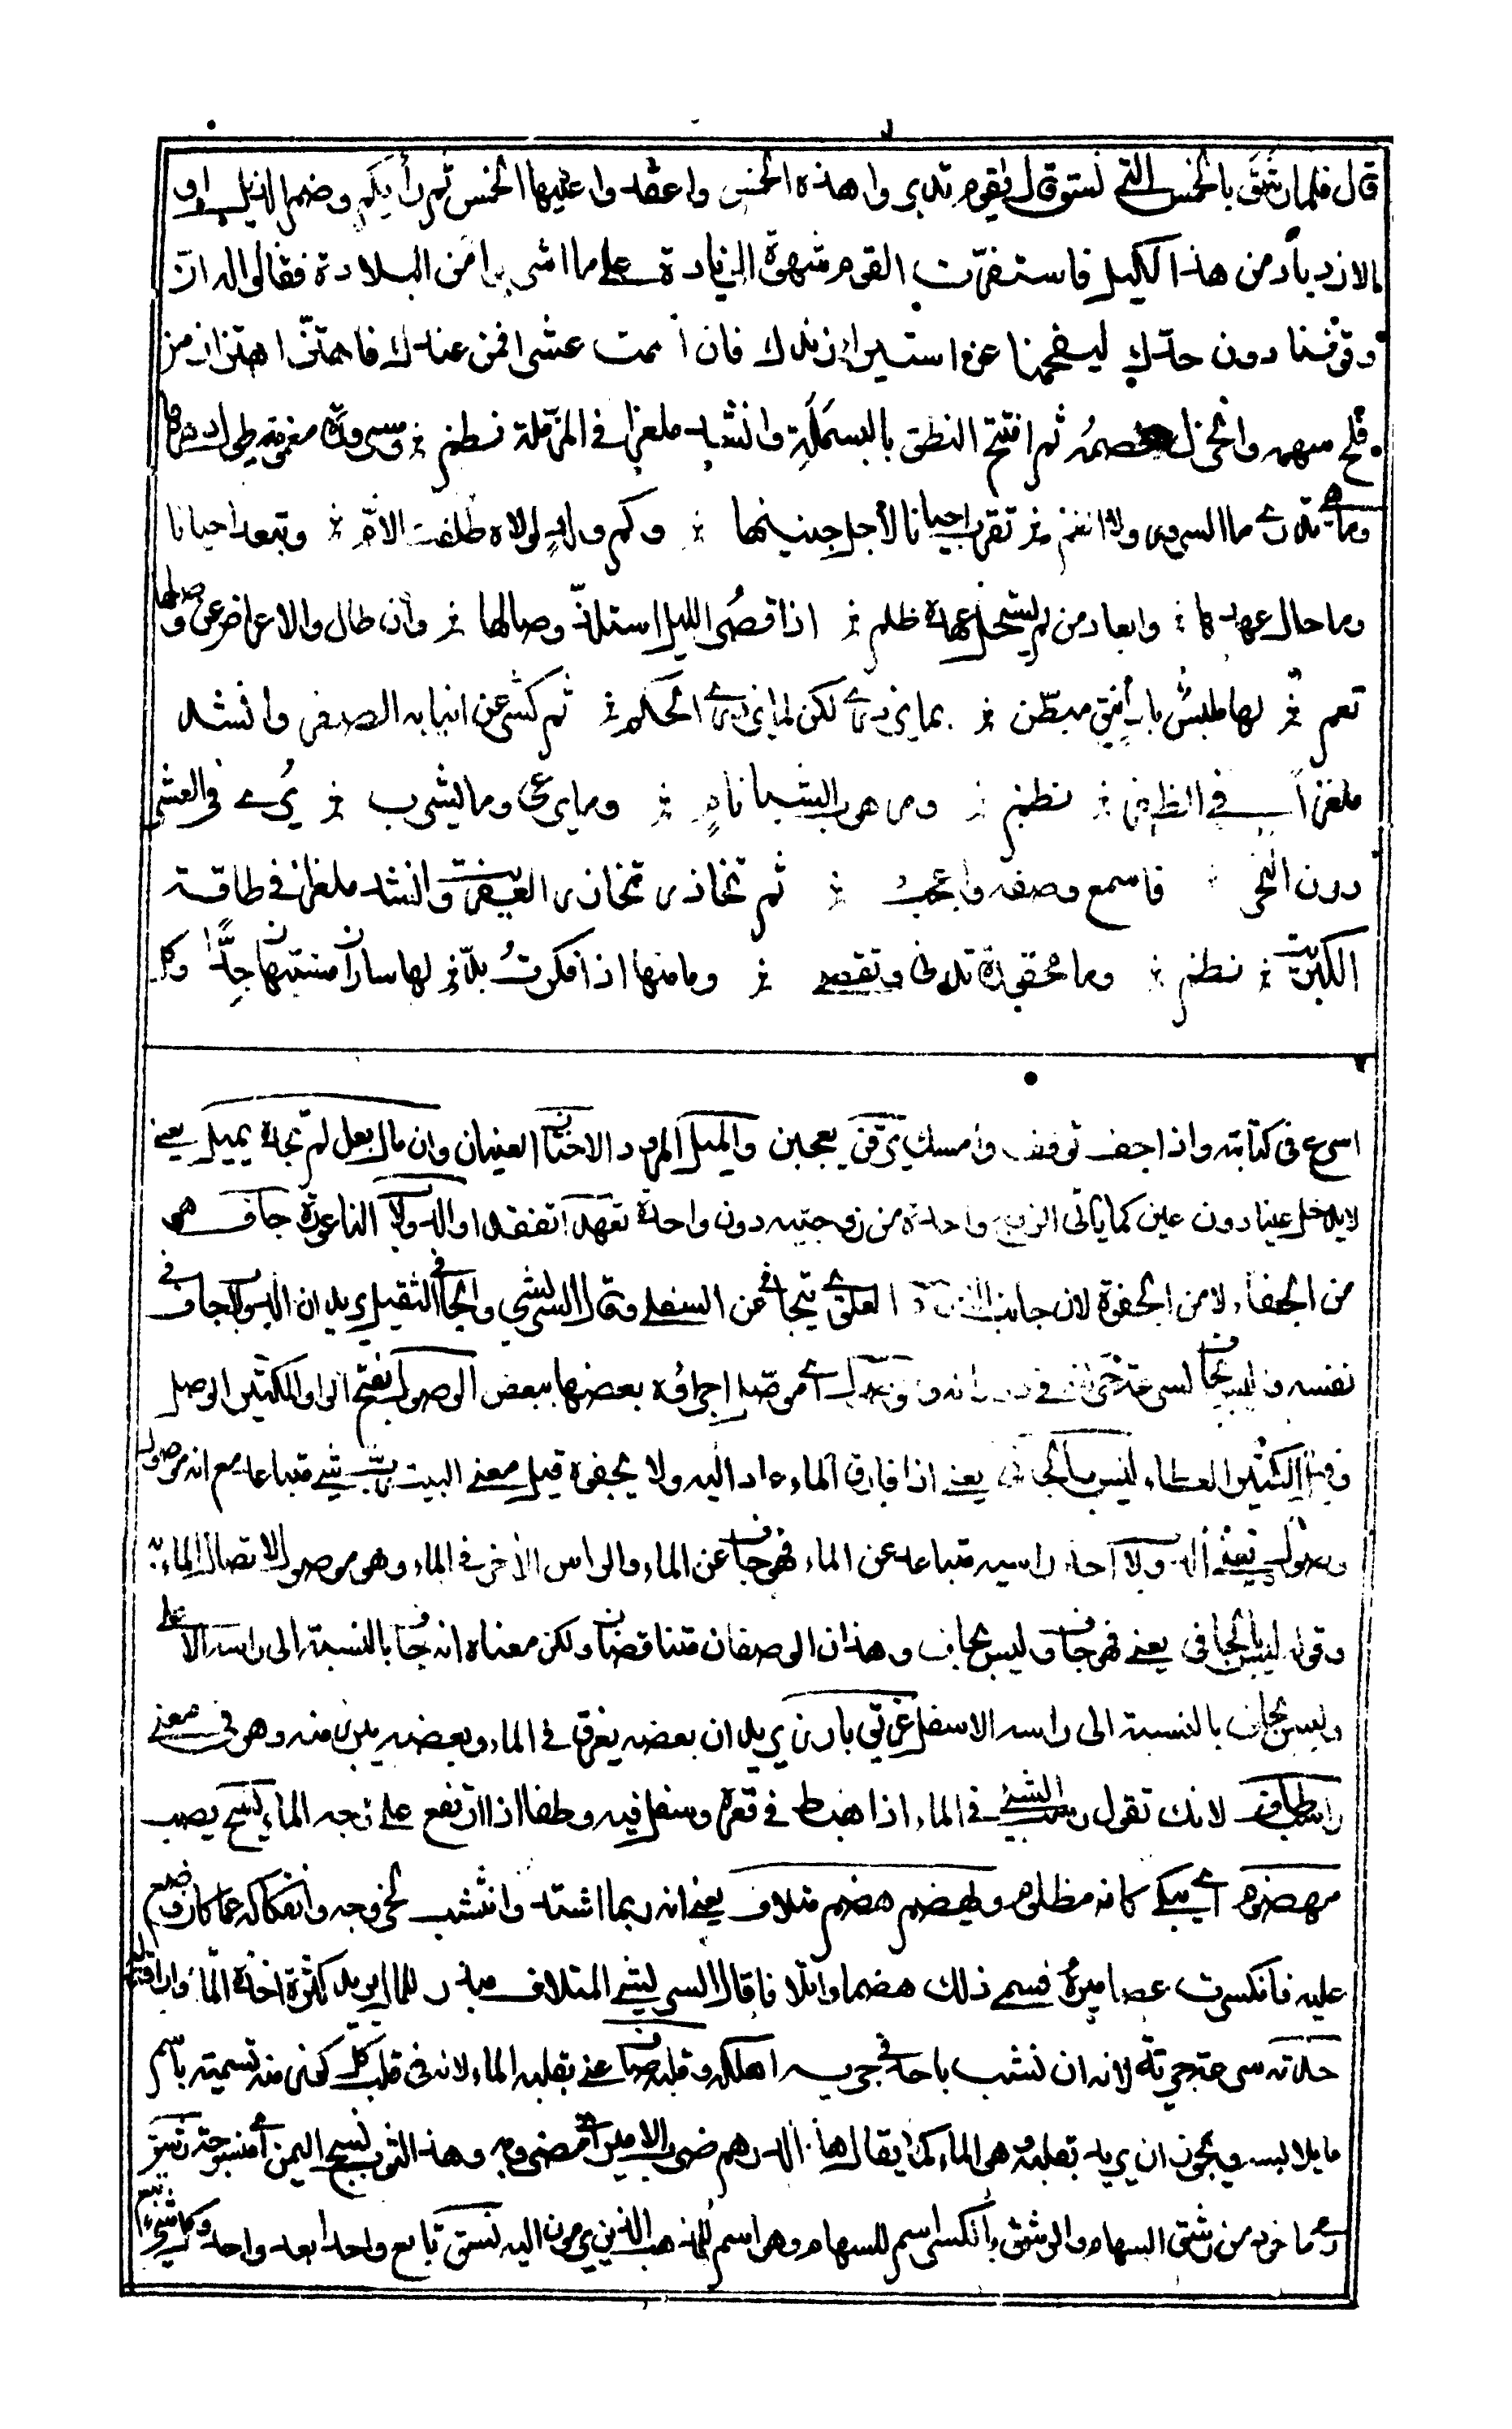 قال فلما رشق بالخمس التي نسق قال يا قوم تدبروا هذه الخمس واعقدوا عليها الخمس ثم رأيكم وضم الذيل او
الازدياد من هذا الكيل فاستفزت القوم شهوة الزيادة على ما اشربوا من البلادة فقالوا له ان
وقوفنا دون حدك ليفحمنا عن استيراء زندك فان اتممت عشرا فمن عندك فاهتز اهتزاز من
فلج سهمه وانخزل خصمه ثم افتتح النطق بالبسملة وانشد ملغزا في المزملة نظم ومسرورة مغمومة طول دهرها
وما تدري ما السرور ولا الغم تقرب احيانا لأجل جنينها وكم ولد لولاه طلقت الام وتبعد احيانا
وما حال عهدها وابعاد من لم يستحل عهده ظلم اذا قصر الليل استلذ وصالها وان طال فالاعراض عن وصلها
نعم لها ملبس باد أنيق مبطن بما يزدرى لكن لما يزدرى الحكم ثم كشر عن انيابه الصفر وانشد
ملغزا في الظفر نظم ومرهوب الشبا نام وما يرعى وما يشرب يرى في العشر
دون النحر فاسمع وصفه واعجب ثم تخازر تخازر العفريت وانشد ملغزا في طاقة
الكبريت نظم وما محقورة تدنى وتقصى وما منها اذا فكرت بد لها رأسان مشتبهان جدا وكل
اسرع في كتابته واذا جف توقف وأمسك يرقن يعجبن والميل المرود الاختان العينان وان مال بعل لم تجده يميل يعني
لا يدخل عينا دون عين كما يأتي الزوج واحدة من زوجتيه دون واحدة تعهدا تفقدا والدولاب الناعورة جاف هو
من الجفاء لا من الجفوة لان جانب العلو يتجافى عن السفل وقال الشريشي والجافي الثقيل يريد ان الدولاب جاف في
نفسه وليس بجاف لسرعة في دورانه وصول اي موصل اجزاؤه بعضها ببعض الوصول بفتح الواو الكثير الوصل
الكثير العطاء ليس بالجافي يعني اذا فارق الماء عاد اليه ولا يجفوه قيل معنى البيت رب شيء متباعد مع انه موصول
وصول يعني الدولاب احد راسيه متباعد عن الماء فهو جاف عن الماء والراس الأخر في الماء وهو موصول لاتصال الماء به
وقوله ليس بالجافي يعني فهو جاف وليس بجاف وهذان الوصفان متناقضان ولكن معناه انه جاف بالنسبة الى راسه الاعلى
وليس بجاف بالنسبة الى راسه الاسفل غريق بارز يريد ان بعضه يغرق في الماء وبعضه يبرز منه وهو في معنى
راسب طاف لانك تقول رسب الشيء في الماء اذا هبط في قعره وسفل فيه وطفا اذا ارتفع على وجه الماء يسح يصب
مهضوم اي يبكي كانه مظلوم ويهضم هضم متلاف يعني انه ربما اشتد وانتشب لخروجه وانفكاكه عما كان وضع
عليه فانكسرت عصا ميره فسمى ذلك هضما واتلافا قال الشريشي المتلاف مبذر للمال يريد كثرة اخذه الماء واراقته
حدته سرعة جريته لانه ان نشب باحد في جريه اهلكه وقلبه صاف عنى بقلبه الماء لانه في قلب كل كوز منه تسميته باسم
ما يلابسه ويجوز ان يريد بقلبه مقلوبه وهو الماء كما يقال هذا الدرهم ضرب الامير اي مضروبه وهذا الثوب نسج اليمن اي منسوجه رشق
رمى ماخوذ من رشق السهام والرشق بالكسر اسم للسهام وهو اسم للمذهب الذين يرمون اليه نسق تابع واحدا بعد واحد وكل شيء